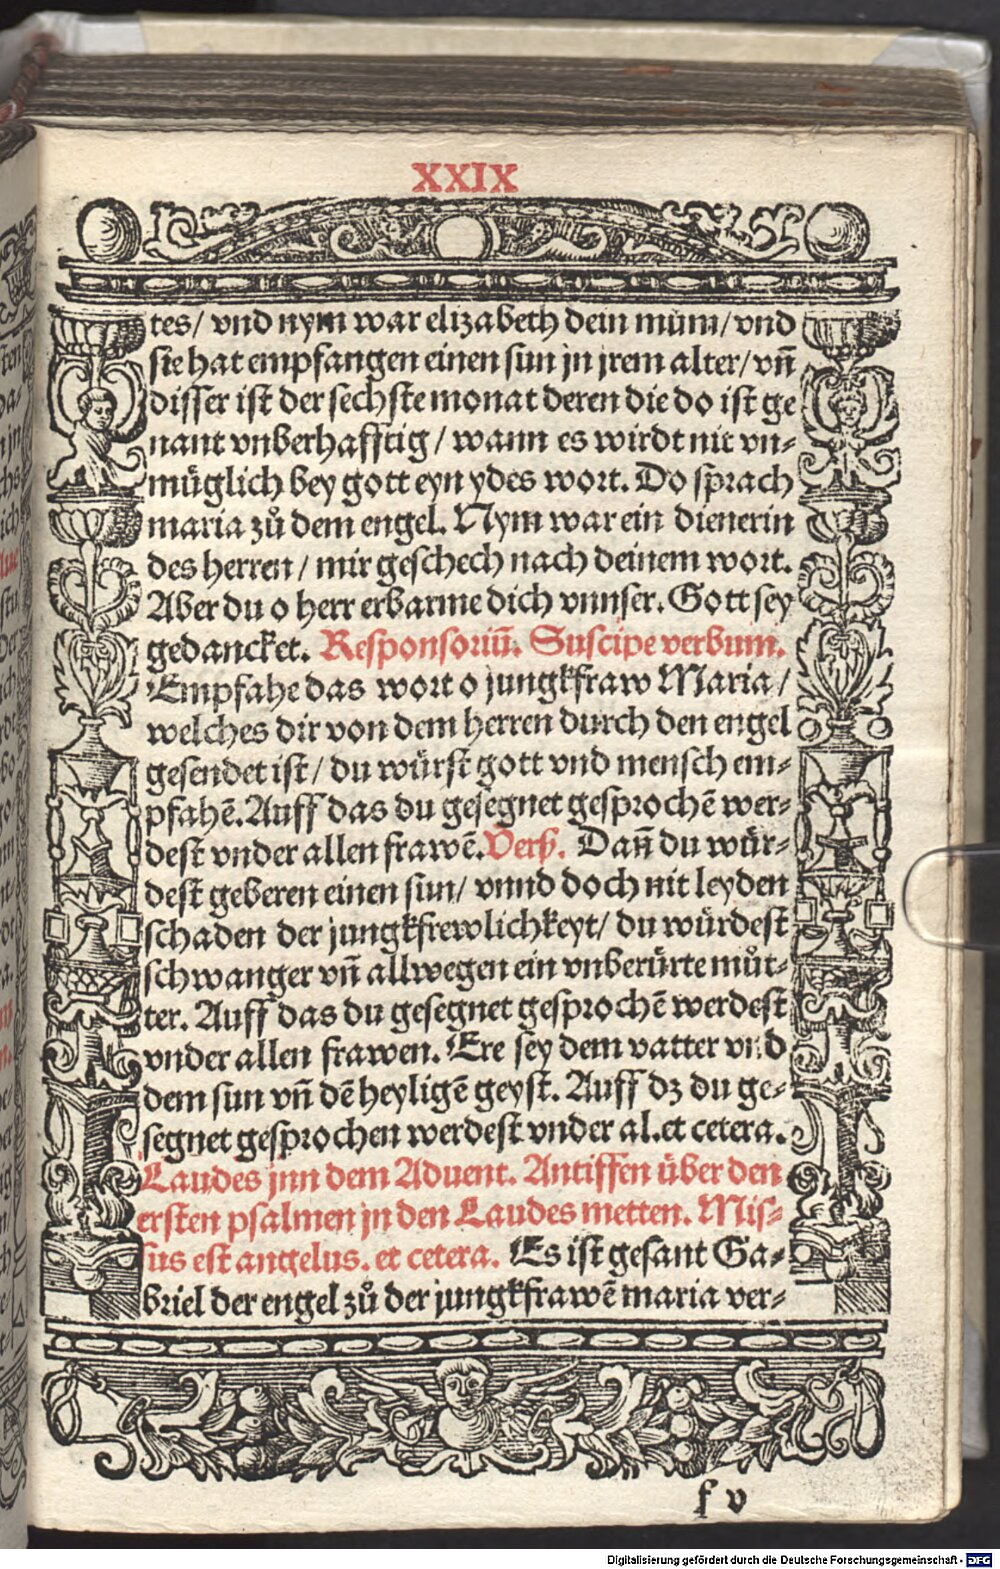 XXIX
tes/ vnd nym war elizabeth dein mům/ vnd
sie hat empfangen einen sun jn jrem alter/ vñ
disser ist der sechste monat deren die do ist ge
nant vnberhafftig/ wann es wirdt nit vn⸗
müglich bey gott eyn ydes wort. Do sprach
maria zů dem engel. Nym war ein dienerin
des herren/ mir geschech nach deinem wort.
Aber du o herr erbarme dich vnnser. Gott sey
gedancket. Responsoriū. Suscipe verbum.
Empfahe das wort o jungkfraw Maria/
welches dir von dem herren durch den engel
gesendet ist/ du würst gott vnd mensch em⸗
pfahē. Auff das du gesegnet gesprochē wer⸗
dest vnder allen frawē. Verß. Dañ du wür⸗
dest geberen einen sun/ vnnd doch nit leyden
schaden der jungkfrewlichkeyt/ du würdest
schwanger vñ allwegen ein vnberürte můt⸗
ter. Auff das du gesegnet gesprochē werdest
vnder allen frawen. Ere sey dem vatter vnd
dem sun vñ dē heyligē geyst. Auff dz du ge⸗
segnet gesprochen werdest vnder al. et cetera.
Laudes jnn dem Aduent. Antiffen über den
ersten psalmen jn den Laudes metten. Mis⸗
sus est angelus. et cetera. Es ist gesant Ga⸗
briel der engel zů der jungkfrawē maria ver⸗
f v
Digitalisierung gefördert durch die Deutsche Forschungsgemeinschaft - DFG